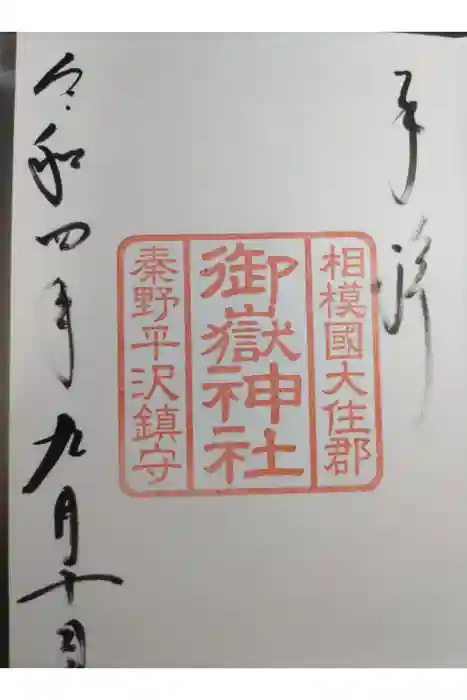 奉拝
相模國大住郡
御嶽神社
秦野平沢鎮守
令和四年九月十日